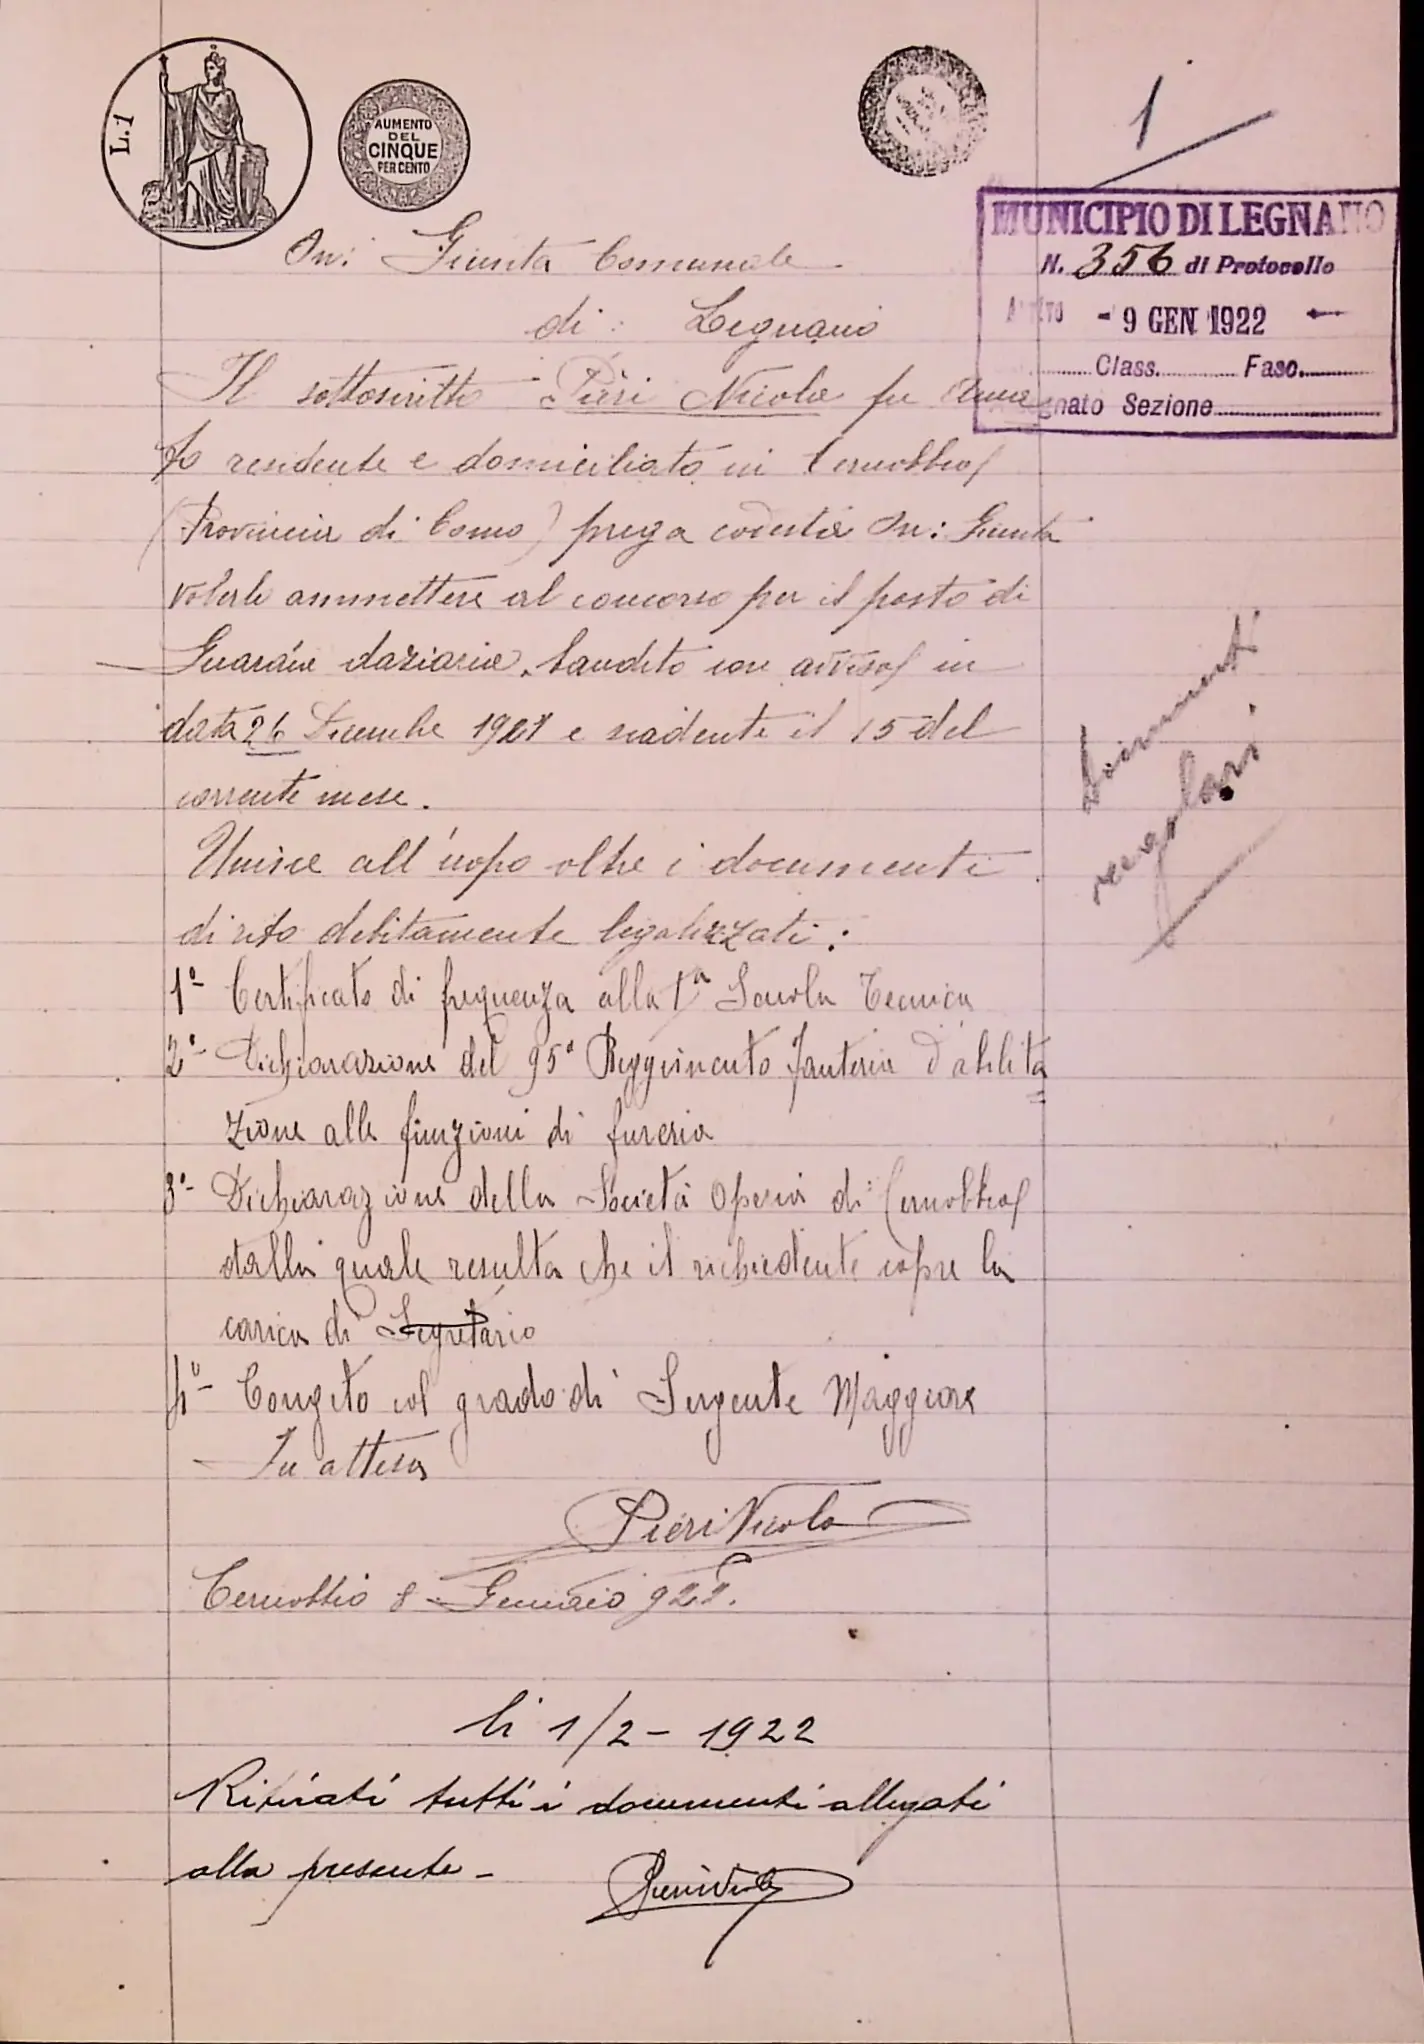 L.1
AUMENTO
DEL
CINQUE
PER CENTO
1
MUNICIPIO DI LEGNANO
N. 356 di Protocollo
- 9 GEN 1922
Class. Fasc.
gnato Sezione
On: Giunta Comunale
di: Legnano
Il sottoscritto Pieri Nicola fu
residente e domiciliato in Cernobbio
(Provincia di Como) prega codesta On: Giunta
volerlo ammettere al concorso per il posto di
Guardia daziaria, bandito con avviso in
data 26 Dicembre 1921 e scadente il 15 del
corrente mese.
Unisce all'uopo oltre i documenti
di rito debitamente legalizzati:
1º- Certificato di frequenza alla 1ª Scuola Tecnica
2º- Dichiarazione del 95º Reggimento Fanteria d'abilita
zione alle funzioni di fureria
3º- Dichiarazione della Società Operaia di Cernobbio
dalla quale resulta che il richiedente copre la
carica di Segretario
4º- Congedo col grado di Sergente Maggiore
In attesa
Pieri Nicola
Cernobbio 8 - Gennaio 922.
Documenti
regolari
li 1/2 - 1922
Ritirati tutti i documenti allegati
alla presente -
Pieri Nicola